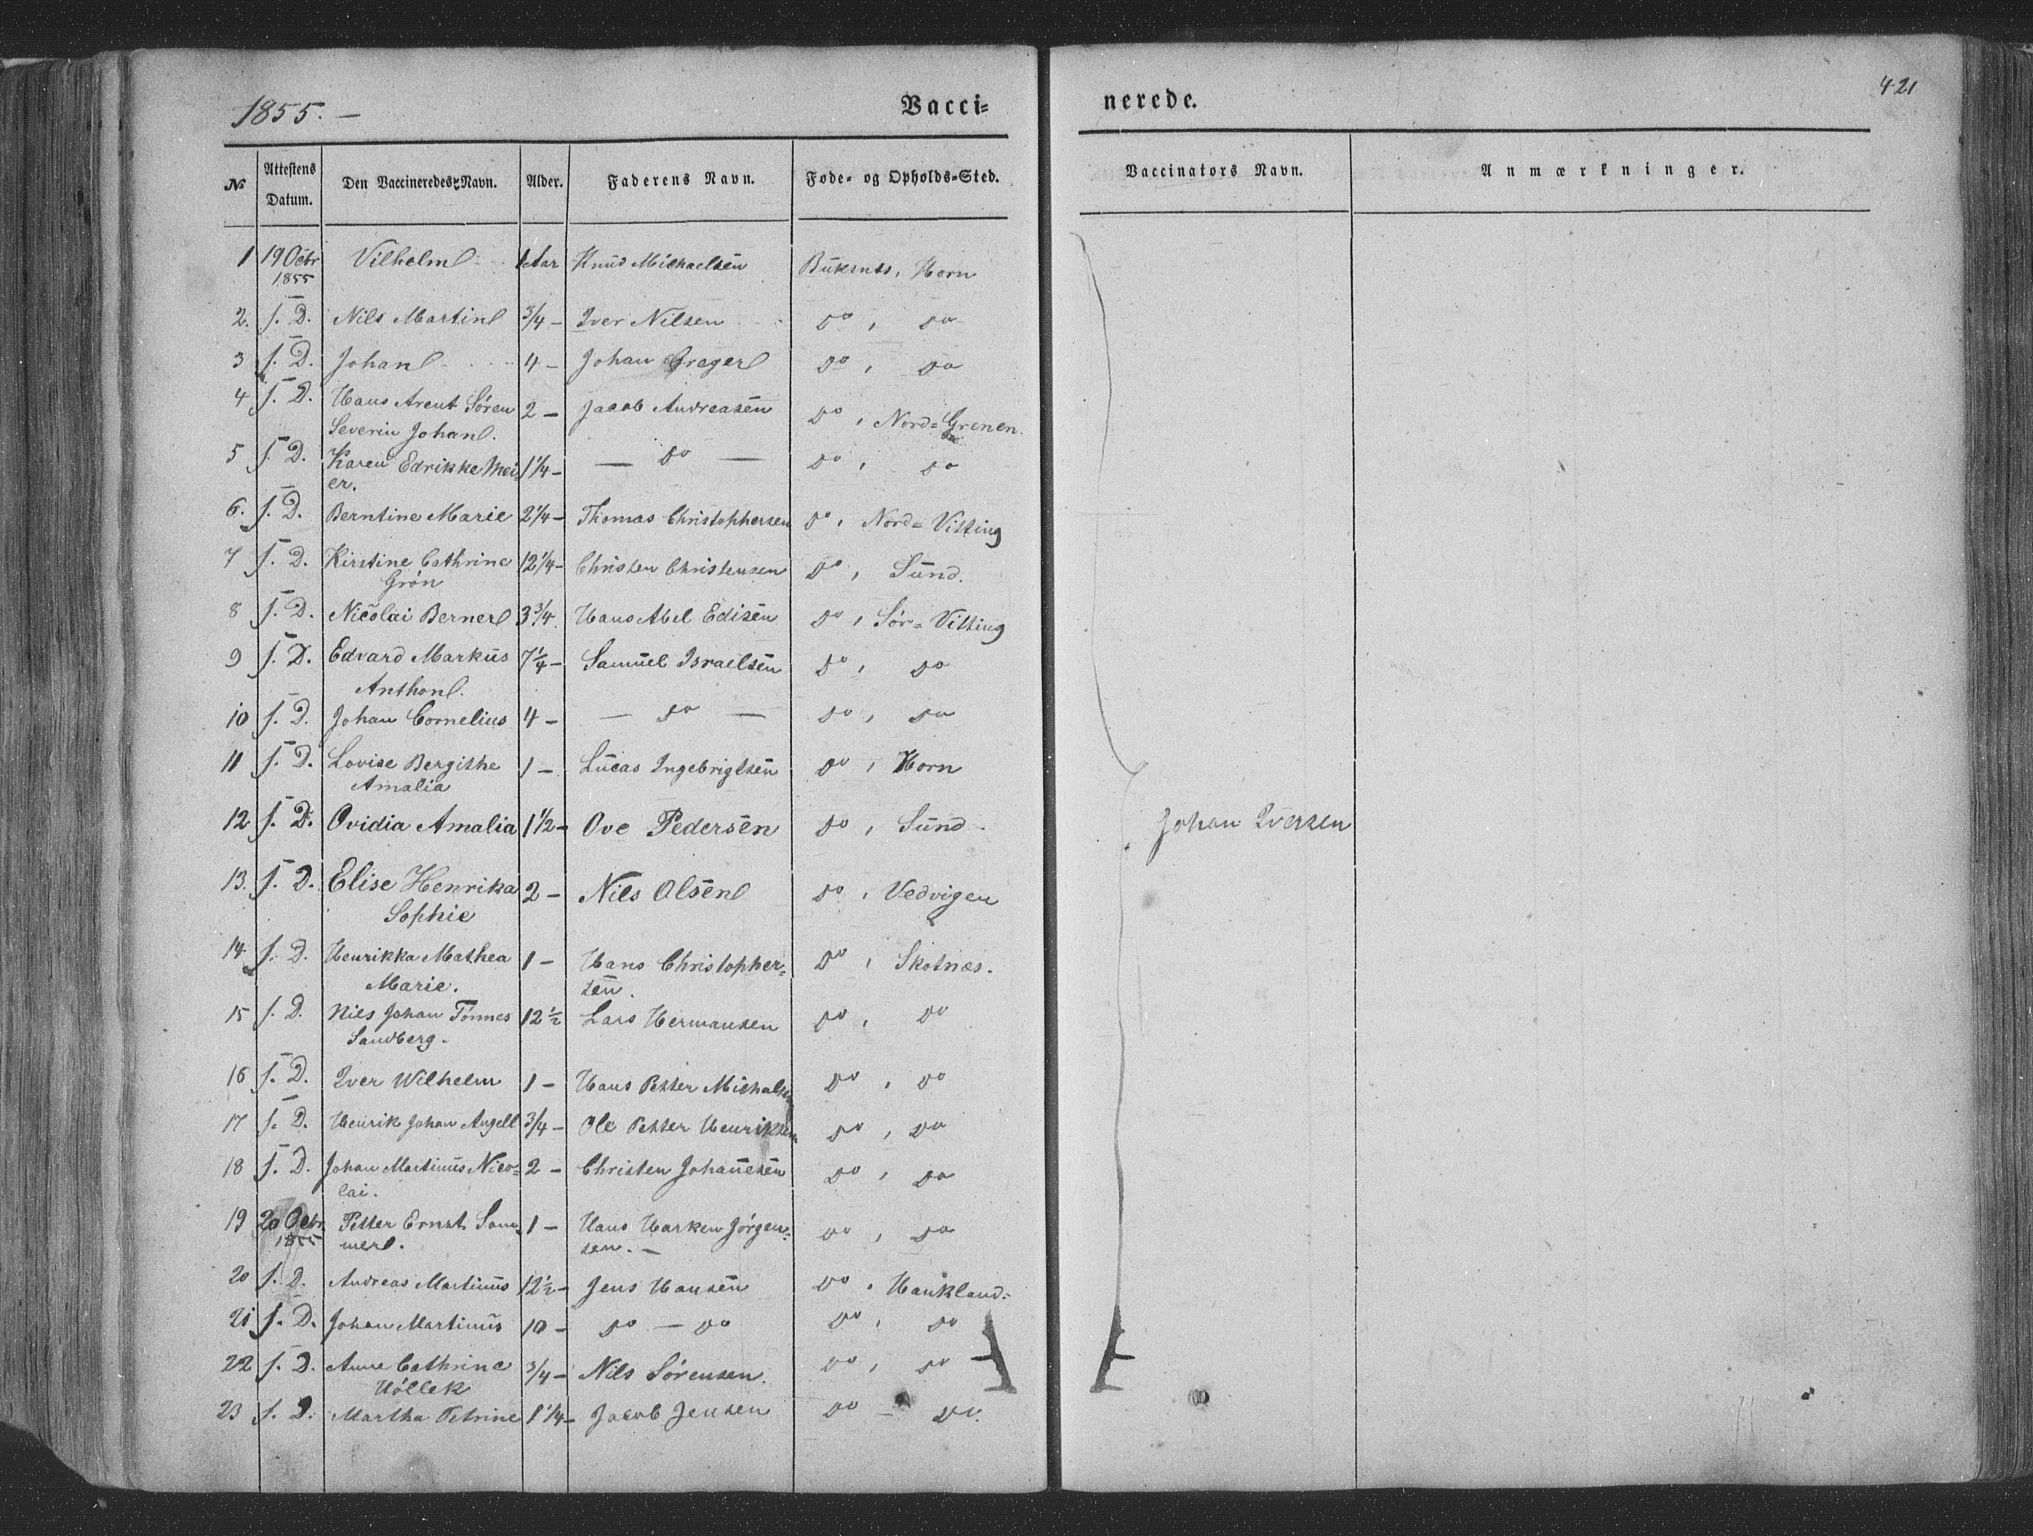 1855. —
Vacci=
nerede.
421
№ Attestens Datum. Den Vaccineredes Navn. Alder. Faderens Navn. Føde= og Opholds=Sted. Vaccinators Navn. Anmærkninger.
1 19 Octbr 1855 Vilhelm 1 Aar Knud Michaelsen Buksnes, Horn
2. s. D. Nils Martin 3/4 – Iver Nilsen do , do
3 s. D. Johan 4 – Johan Greger do , do
4 s. D. Hans Arent Søren 2 – Jacob Andreasen do , Nord=Grenen
Severin Johan.
5 s. D. Karen Edrikke Mei 1 1/4 – — do — do , do
er.
6. s. D. Berntine Marie 2 1/4 – Thomas Christophersen do , Nord=Vitting
7 s. D. Kirstine Cathrine 12 1/4 – Christen Christensen do , Sund.
Grøn
8 s. D. Nicolai Berner 3 3/4 Hans Abel Edisen do , Sør=Vitting
9 s. D. Edvard Markus 7 1/4 – Samuel Israelsen do , do
Anthon.
10 s. D. Johan Cornelius 4 – — do — do , do
11 s. D. Lovise Bergithe 1 – Lucas Ingebrigtsen do , Horn
Amalia
12 s. D. Ovidia Amalia 1 1/2 – Ove Pedersen do , Sund Johan Iversen
13. s. D. Elise Henrika 2 – Nils Olsen do , Vedvigen
Sophie
14 s. D. Henrikka Mathea 1 – Hans Christopher= do , Skotnæs.
Marie. sen.
15 s. D. Nils Johan Tønnes 12 1/2 Lars Hermansen do , do
Sandberg.
16 s. D. Iver Wilhelm 1 – Hans Petter Michalsen do , do
17 s. D. Henrik Johan Angell 3/4 – Ole Petter Henriksen do , do
18 s. D. Johan Martinus Nico= 2 – Christen Johannesen do , do
lai.
19 20 Octbr 1855 Petter Ernst Som 1 – Hans Harken Jørgen= do , do
mer. sen. —
20 s. D. Andreas Martinus 12 1/2 – Jens Hansen do , Haukland
21 s. D. Johan Martinus 10 – do — do do , do
22 s. D. Anne Cathrine 3/4 – Nils Sørensen. do , do
Høllek
23 s. D. Martha Petrine 1 1/4 – Jacob Jensen do – do.